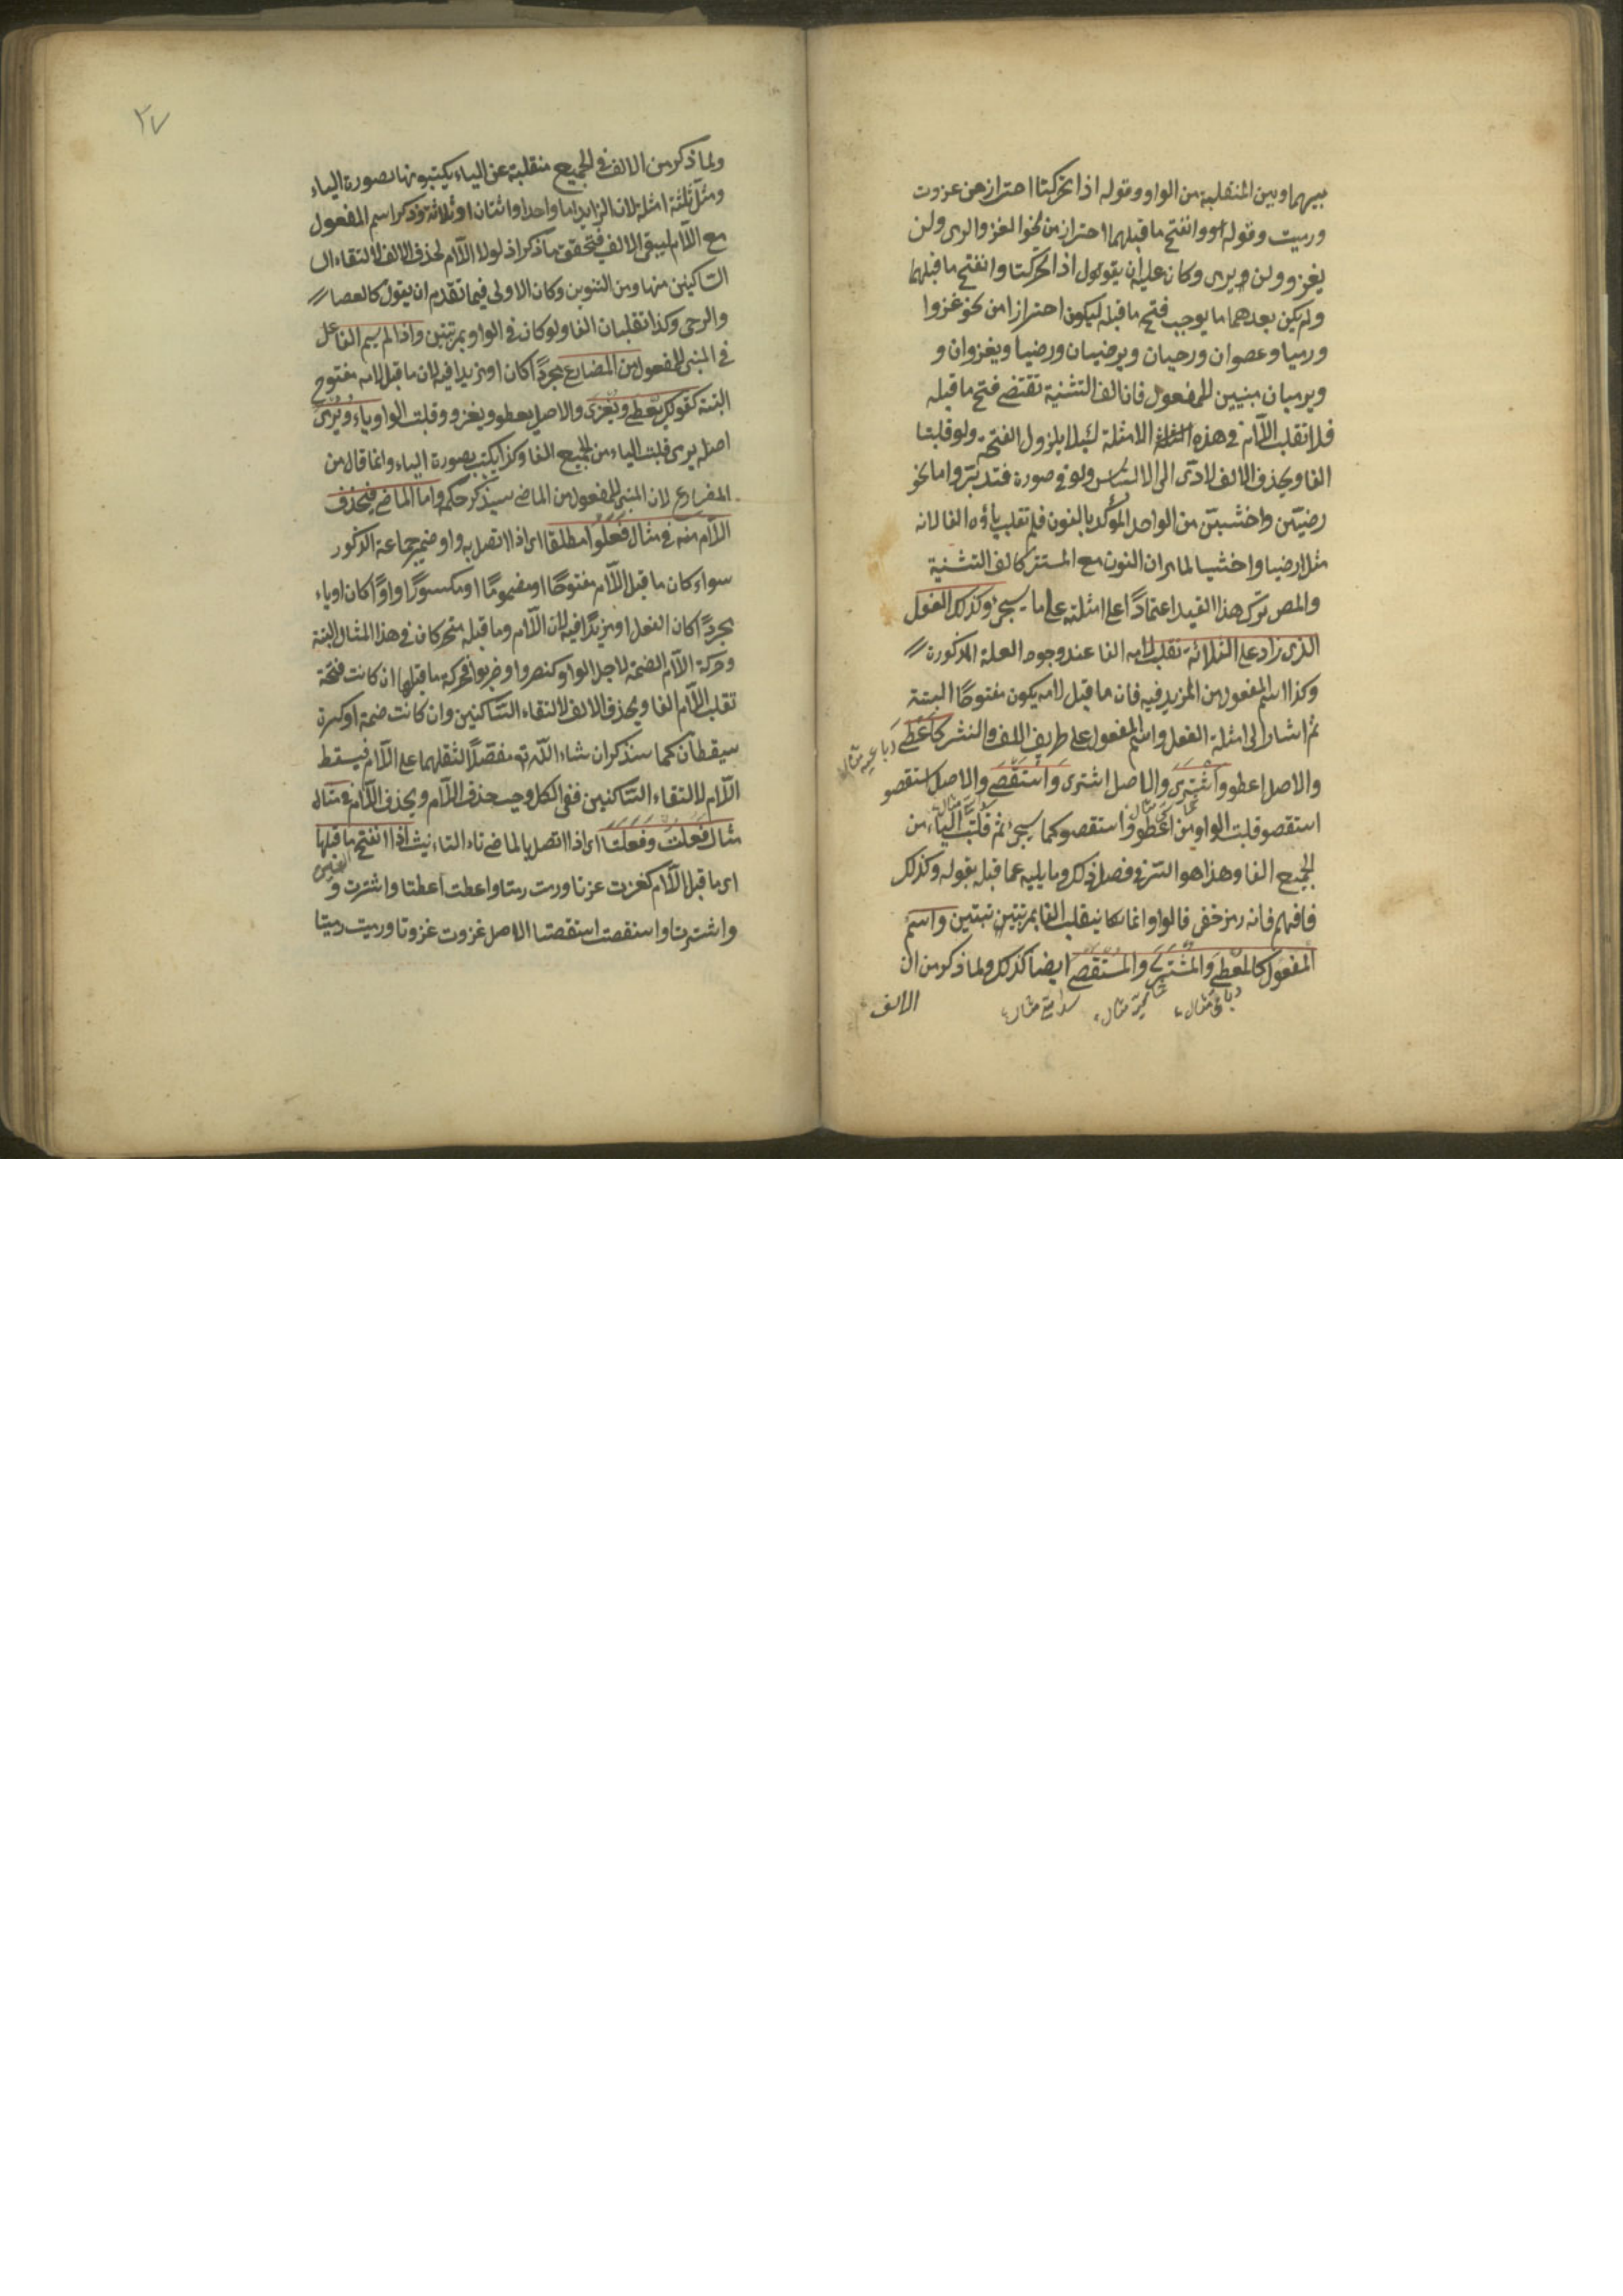 بينهما وبين المنقلبة من الواو وقوله اذا تحركتا احتراز عن غزوت
ورميت وقوله وانفتح ما قبلهما احتراز من نحو الغزو والرمى ولن
يغزو ولن يرمى وكان عليه ان يقول اذا تحركتا وانفتح ما قبلهما
ولم يكن بعدهما ما يوجب فتح ما قبله ليكون احترازا من نحو غزوا
ورميا وعصوان ورحيان ويرضيان ورضيا ويغزوان و
ويرميان مبنيين للمفعول فان الف التثنية تقتضى فتح ما قبله
فلا تقلب اللام فى هذه الامثلة لئلا يلزول الفتحة ولو قلبتا
الفا ويحذف الالف لادى الى الالتباس ولو فى صورة فتدبر واما نحو
رضين واخشين من الواحد المؤكد بالنون فلم تقلب ياؤه الفا لانه
مثل ارضيا واخشيا لما مر ان النون مع المستتر كالف التثنية
والمص ترك هذا القيد اعتمادًا على امثلته على ما سيجئ وكذلك الفعل
الذى زاد على الثلاثة تقلب لامه الفا عند وجود العلة المذكورة
وكذا اسم المفعول من المزيد فيه فان ما قبل لامه يكون مفتوحًا البتة
ثم اشار الى امثلة الفعل واسم المفعول على طريق اللف والنشر كاعطى
والاصل اعطو واشترى والاصل اشترى واستقصى والاصل استقصو
استقصو قلبت الواو من اعطو واستقصو كما سيجئ ثم قلبت الياء من
الجميع الفا وهذا هو السر فى فصل ذلك وما يليه عما قبله بقوله وكذلك
فافهم فانه رمز خفى قالوا وانما كانت قلب الفا بمرتبتين واسم
المفعول كالمعطى والمشترى والمستقصى ايضا كذلك ولما ذكر من ان
الالف
٢٧
ولما ذكر من الالف فى الجميع منقلبة عن الياء يكتبونها بصورة الياء
ومثل ثلثة امثلة لان الزايد اما واحد او اثنان او ثلاثة وذكر اسم المفعول
مع اللام ليبقى الالف فتحقق ما ذكر اذ لولا اللام لحذف الالف لالتقاء ال
الساكنين منها ومن التنوين وكان الاولى فيما تقدم ان يقول كالعصا
والرحى وكذا تقلبان الفا ولو كان فى الواو بمرتبتين واذا لم يسم الفاعل
فى المبنى للمفعول من المضارع مجردًا كان او مزيدا فيه لان ما قبل لامه مفتوح
البتة كقولك يعطى ويغزى والاصل يعطو ويغزو وقلبت الواو ياء ويرمى
اصله يرمى قلبت الياء من الجميع الفا وكذا يكتب بصورة الياء وانما قال من
المضارع لان المبنى للمفعول من الماضى سيذكر حكمه واما الماضى فيحذف
اللام منه فى مثال فعلوا مطلقا اى اذا اتصل به واو ضمير جماعة الذكور
سواء كان ما قبل اللام مفتوحًا او مضمومًا او مكسورًا واوًا كان او ياء
مجردًا كان الفعل او مزيدًا فيه لان اللام وما قبله متحركان فى هذا المثال البتة
وحركة اللام الضمة لاجل الواو كنصروا وضربوا فحركة ما قبلها ان كانت فتحة
تقلب اللام الفا ويحذف الالف لالتقاء الساكنين وان كانت ضمة او كسرة
سيقطان كما سنذكر ان شاء الله تع مفصلًا لثقلهما على اللام فيسقط
اللام لالتقاء الساكنين ففى الكل وجب حذف اللام ويحذف اللام فى مثال
مثال فعلت وفعلتا اى اذا اتصل بالماضى تاء التاءنيث اذا انفتح ما قبلها
اى ما قبل اللام كغزت غزتا ورمت رمتا واعطت اعطتا واشترت و
واشترتا واستقصت استقصتا الاصل غزوت غزوتا ورميت رميتا